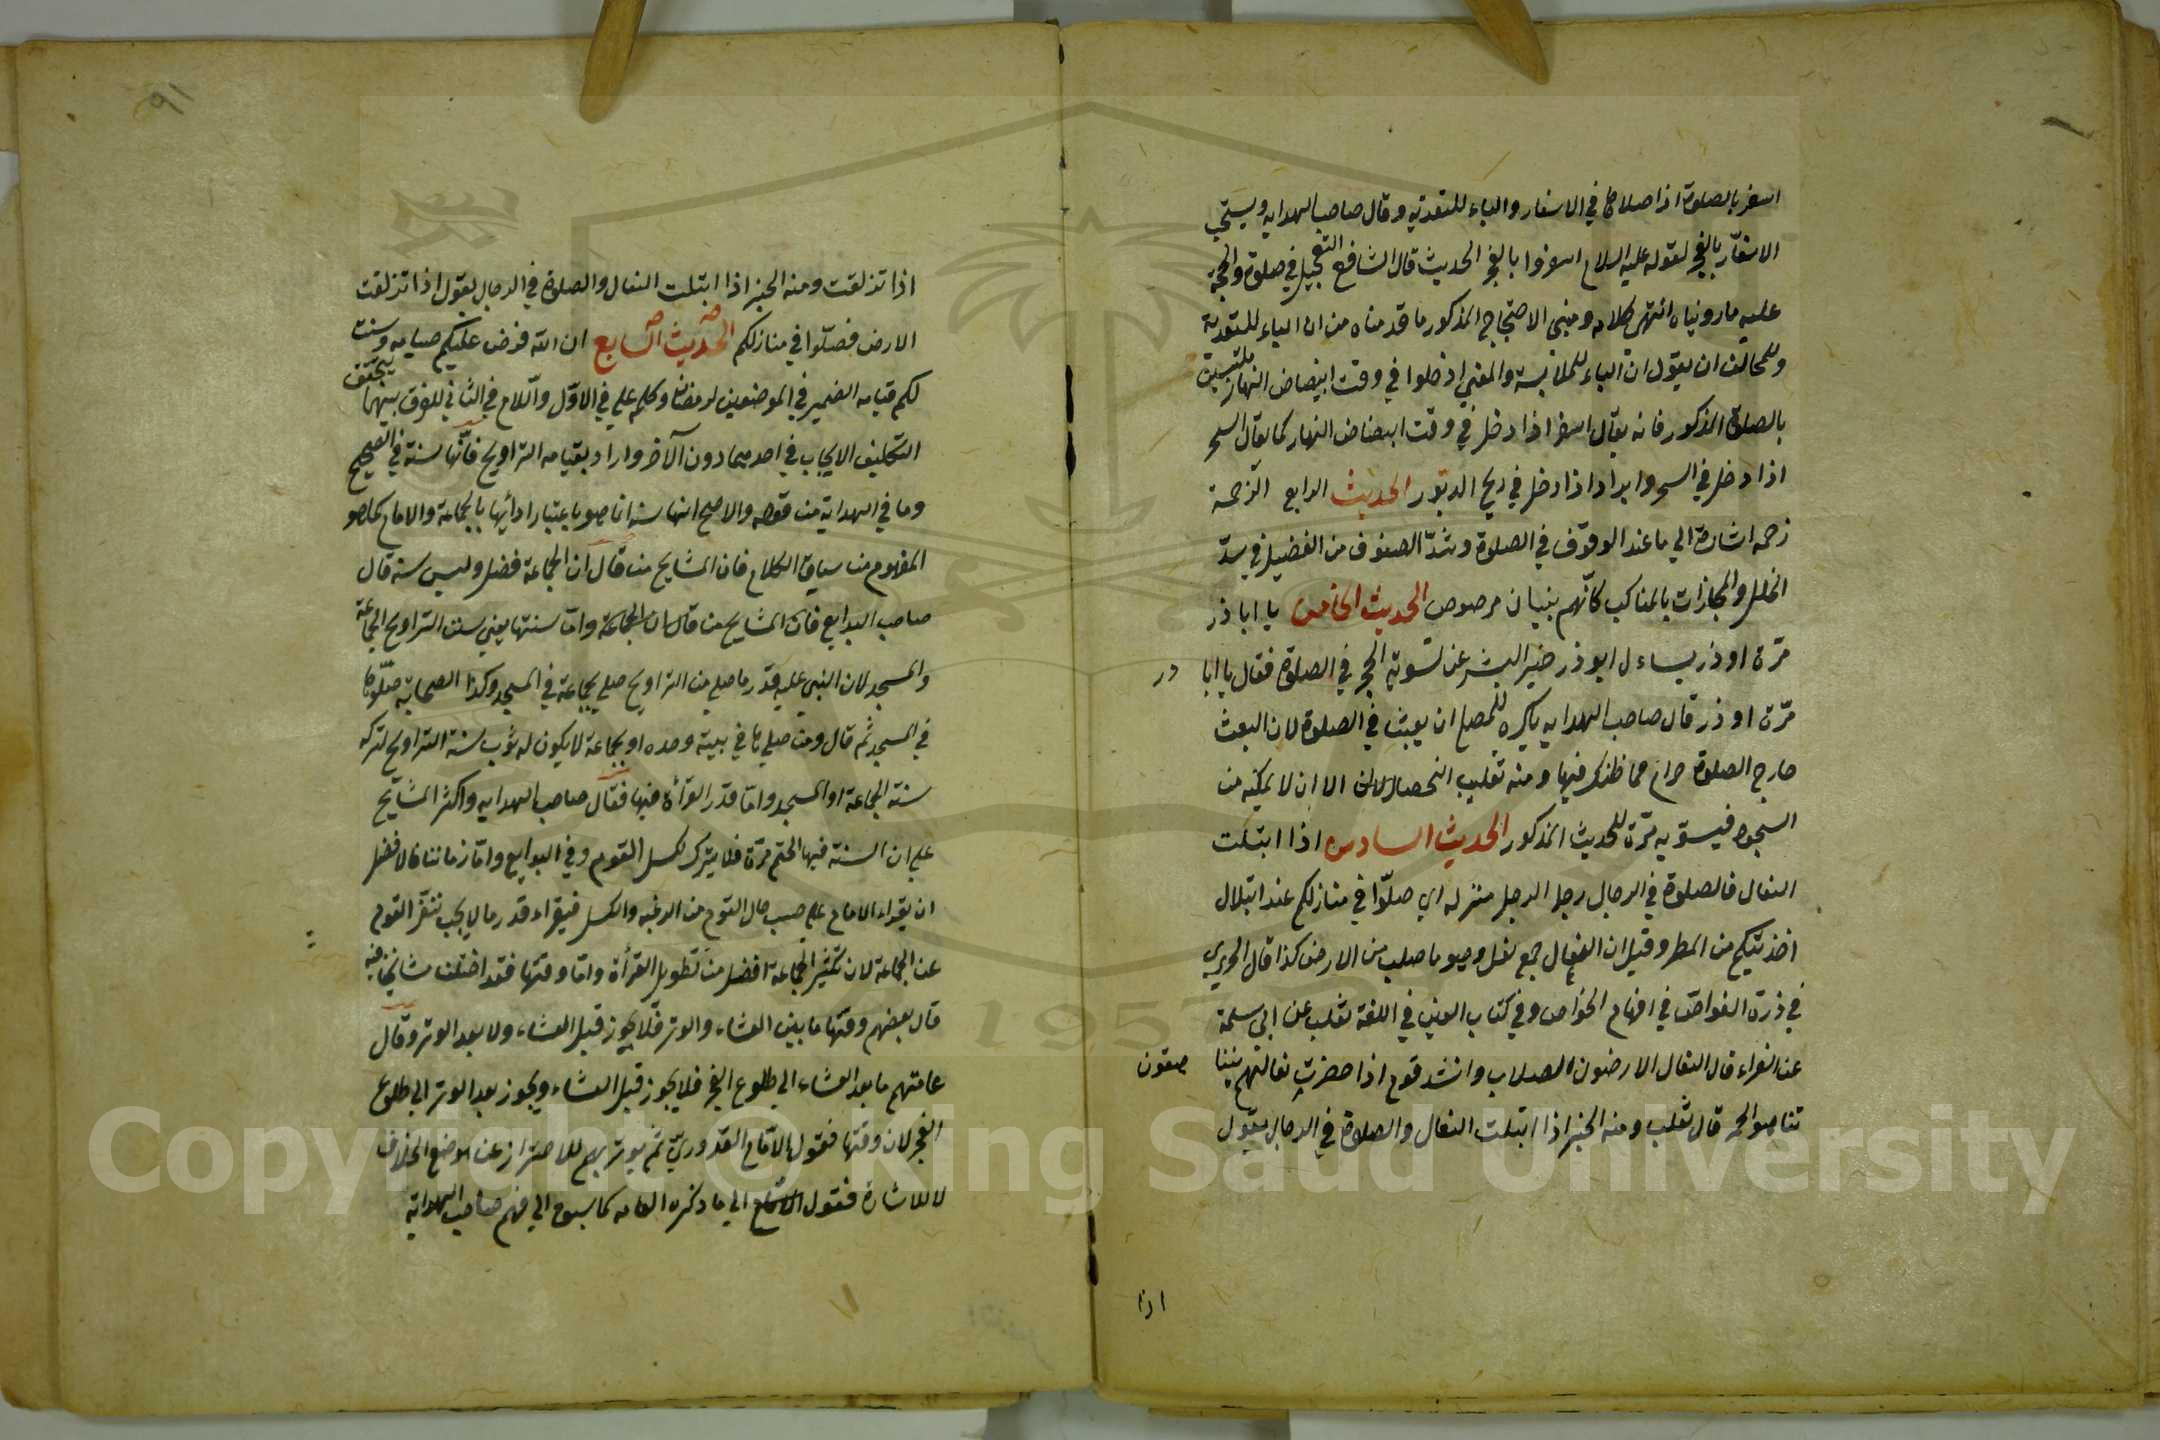 اسفر بالصلوة اذا صلاها في الاسفار والباء للتعدية وقال صاحب الهدايه ويستحب
الاسفار بالفجر لقوله عليه السلام اسفروا بالفجر الحديث قال الشافعي التعجيل في صلوة والحجة
عليه مارويناه انتهى كلامه ومبنى الاحتجاج المذكور ما قدمناه من ان الباء للتعدية
وللمخالف ان يقول ان الباء للملابسة والمعنى ادخلوا في وقت ابيضاض النهار ملتبسين
بالصلوة المذكور فانه يقال اسفر اذا دخل في وقت ابيضاض النهار كما يقال اسحر
اذا دخل في السحر وابر اذا دخل في ريح الدبور الحديث الرابع الزحمة
زحمه اشارة الي ما عند الوقوف في الصلوة وشدّ الصفوف من الفضيل في سدّ
الخلل والمحازات بالمناكب كانّهم بنيان مرصوص الحديث الخامس يا ابا ذر
مرّة او ذر يساءل ابو ذر خير البشر عن تسوية الحجر في الصلوة فقال يا ابا ذر
مرّة او ذر قال صاحب الهدايه يكره للمصلي ان يعبث في الصلوة لان العبث
خارج الصلوة حرام فما ظنك فيها ومنه تقليب الحصا الا ان لا يمكنه من
السجود فيسوّيه مرّة للحديث المذكور الحديث السادس اذا ابتلت
النعال فالصلوة في الرحال رحل الرجل منزله اي صلّوا في منازلكم عند ابتلال
احذيتكم من المطر وقيل ان النعال جمع نعل وهو ما صلب من الارض كذا قال الحريري
في درة الغواص في اوهام الخواص وفي كتاب العين في اللغة ثعلب عن ابي سلمة
عن الفراء قال النعال الارضون الصلاب وانشد قوم اذا خضرت نعالهم يتناهقون
تناهق الحمر قال ثعلب ومنه الخبر اذا ابتلت النعال والصلوة في الرحال يقول
اذا
٩١
اذا تزلقت ومنه الخبر اذا ابتلت النعال والصلوة في الرحال يقول اذا تزلقت
الارض فصلّوا في منازلكم الحديث السابع ان الله فرض عليكم صيامه وسنت
لكم قيامه الضمير في الموضعين لرمضان وكلمة علي في الاوّل واللام في الثاني للفرق بينهما يتحقق
التكليف الايجاب في احدهما دون الآخر واراد بقيامه التراويح فانّها سنة في الصحيح
وما في الهداية من قوله والاصح انها سنة انما هو باعتبار ادائها بالجماعة والامام كما هو
المفهوم من سياق الكلام فان المشايخ من قال ان الجماعة فضل وليس سنة قال
صاحب البدايع فان المشايخ من قال ان الجماعة واما سنتها يعني سنن التراويح الجماعة
والمسجد لان النبي عليه قدر ما صلي من التراويح صلي بجماعة في المسجد وكذا الصحابه صلّوها
في المسجد ثم قال ومن صلي ها في بيته وحده او بجماعة لا يكون له ثوب سنة التراويح لتركه
سنة الجماعة او المسجد واما قدر القرأة فيها فقال صاحب الهدايه واكثر المشايخ
علي ان السنة فيها الختم مرّة فلا يترك لكسل القوم وفي البدايع واما زماننا فالافضل
ان يقراء الامام علي حسب حال القوم من الرغبة والكسل فيقراء قدر ما لا يجب تنفر القوم
عن الجماعة لان تكثير الجماعة افضل من تطويل القرأة واما وقتها فقد اختلف مشايخنا فيه
قال بعضهم وقتها ما بين العشاء والوتر فلا يجوز قبل العشاء ولا بعد الوتر وقال
عامتهم ما بعد العشاء الي طلوع الفجر فلا يجوز قبل العشاء ويجوز بعد الوتر الي طلوع
الفجر لان وقتها فقول الامام القدوريّ ثم يوتر بهم للاحتراز عن موضع الخلاف
لا للاشارة فقول الي ما ذكره العامه كما سبق الي فهم صاحب الهداية